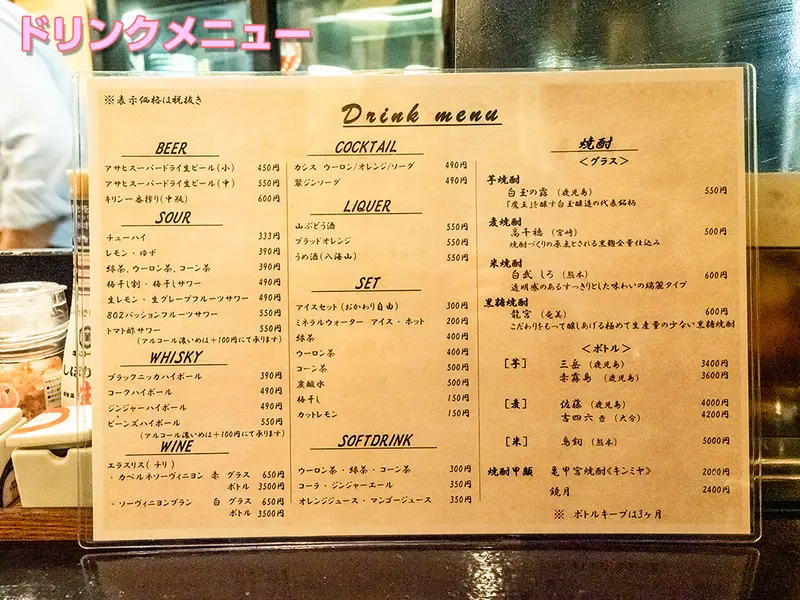 ドリンクメニュー
※表示価格は税抜き
Drink menu
BEER
アサヒスーパードライ生ビール(小) 450円
アサヒスーパードライ生ビール(中) 550円
キリン一番搾り(中瓶) 600円
SOUR
チューハイ 333円
レモン・ゆず 390円
緑茶、ウーロン茶、コーン茶 390円
梅干し割・梅干しサワー 490円
生レモン・生グレープフルーツサワー 490円
802パッションフルーツサワー 550円
トマト酢サワー 550円
(アルコール濃いめは+100円にて承ります)
WHISKY
ブラックニッカハイボール 390円
コークハイボール 490円
ジンジャーハイボール 490円
ビーンズハイボール 550円
(アルコール濃いめは+100円にて承ります)
WINE
エラスリス(チリ)
・カベルネソーヴィニヨン 赤 グラス 650円
ボトル 3500円
・ソーヴィニヨンブラン 白 グラス 650円
ボトル 3500円
COCKTAIL
カシス ウーロン/オレンジ/ソーダ 490円
翠ジンソーダ 490円
LIQUER
山ぶどう酒 550円
ブラッドオレンジ 550円
うめ酒(八海山) 550円
SET
アイスセット(おかわり自由) 300円
ミネラルウォーター アイス・ホット 200円
緑茶 400円
ウーロン茶 400円
コーン茶 500円
炭酸水 500円
梅干し 150円
カットレモン 150円
SOFTDRINK
ウーロン茶・緑茶・コーン茶 300円
コーラ・ジンジャーエール 350円
オレンジジュース・マンゴージュース 350円
焼酎
<グラス>
芋焼酎
白玉の露(鹿児島) 550円
「魔王」を醸す白玉醸造の代表銘柄
麦焼酎
高千穂(宮崎) 500円
焼酎づくりの原点とされる黒麹全量仕込み
米焼酎
白武 しろ(熊本) 600円
透明感のあるすっきりとした味わいの端麗タイプ
黒糖焼酎
龍宮(奄美) 600円
こだわりをもって醸しあげる極めて生産量の少ない黒糖焼酎
<ボトル>
[芋] 三岳(鹿児島) 3400円
赤霧島(鹿児島) 3600円
[麦] 佐藤(鹿児島) 4000円
吉四六 壺(大分) 4200円
[米] 鳥飼(熊本) 5000円
焼酎甲類 亀甲宮焼酎《キンミヤ》 2000円
鏡月 2400円
※ ボトルキープは3ヶ月